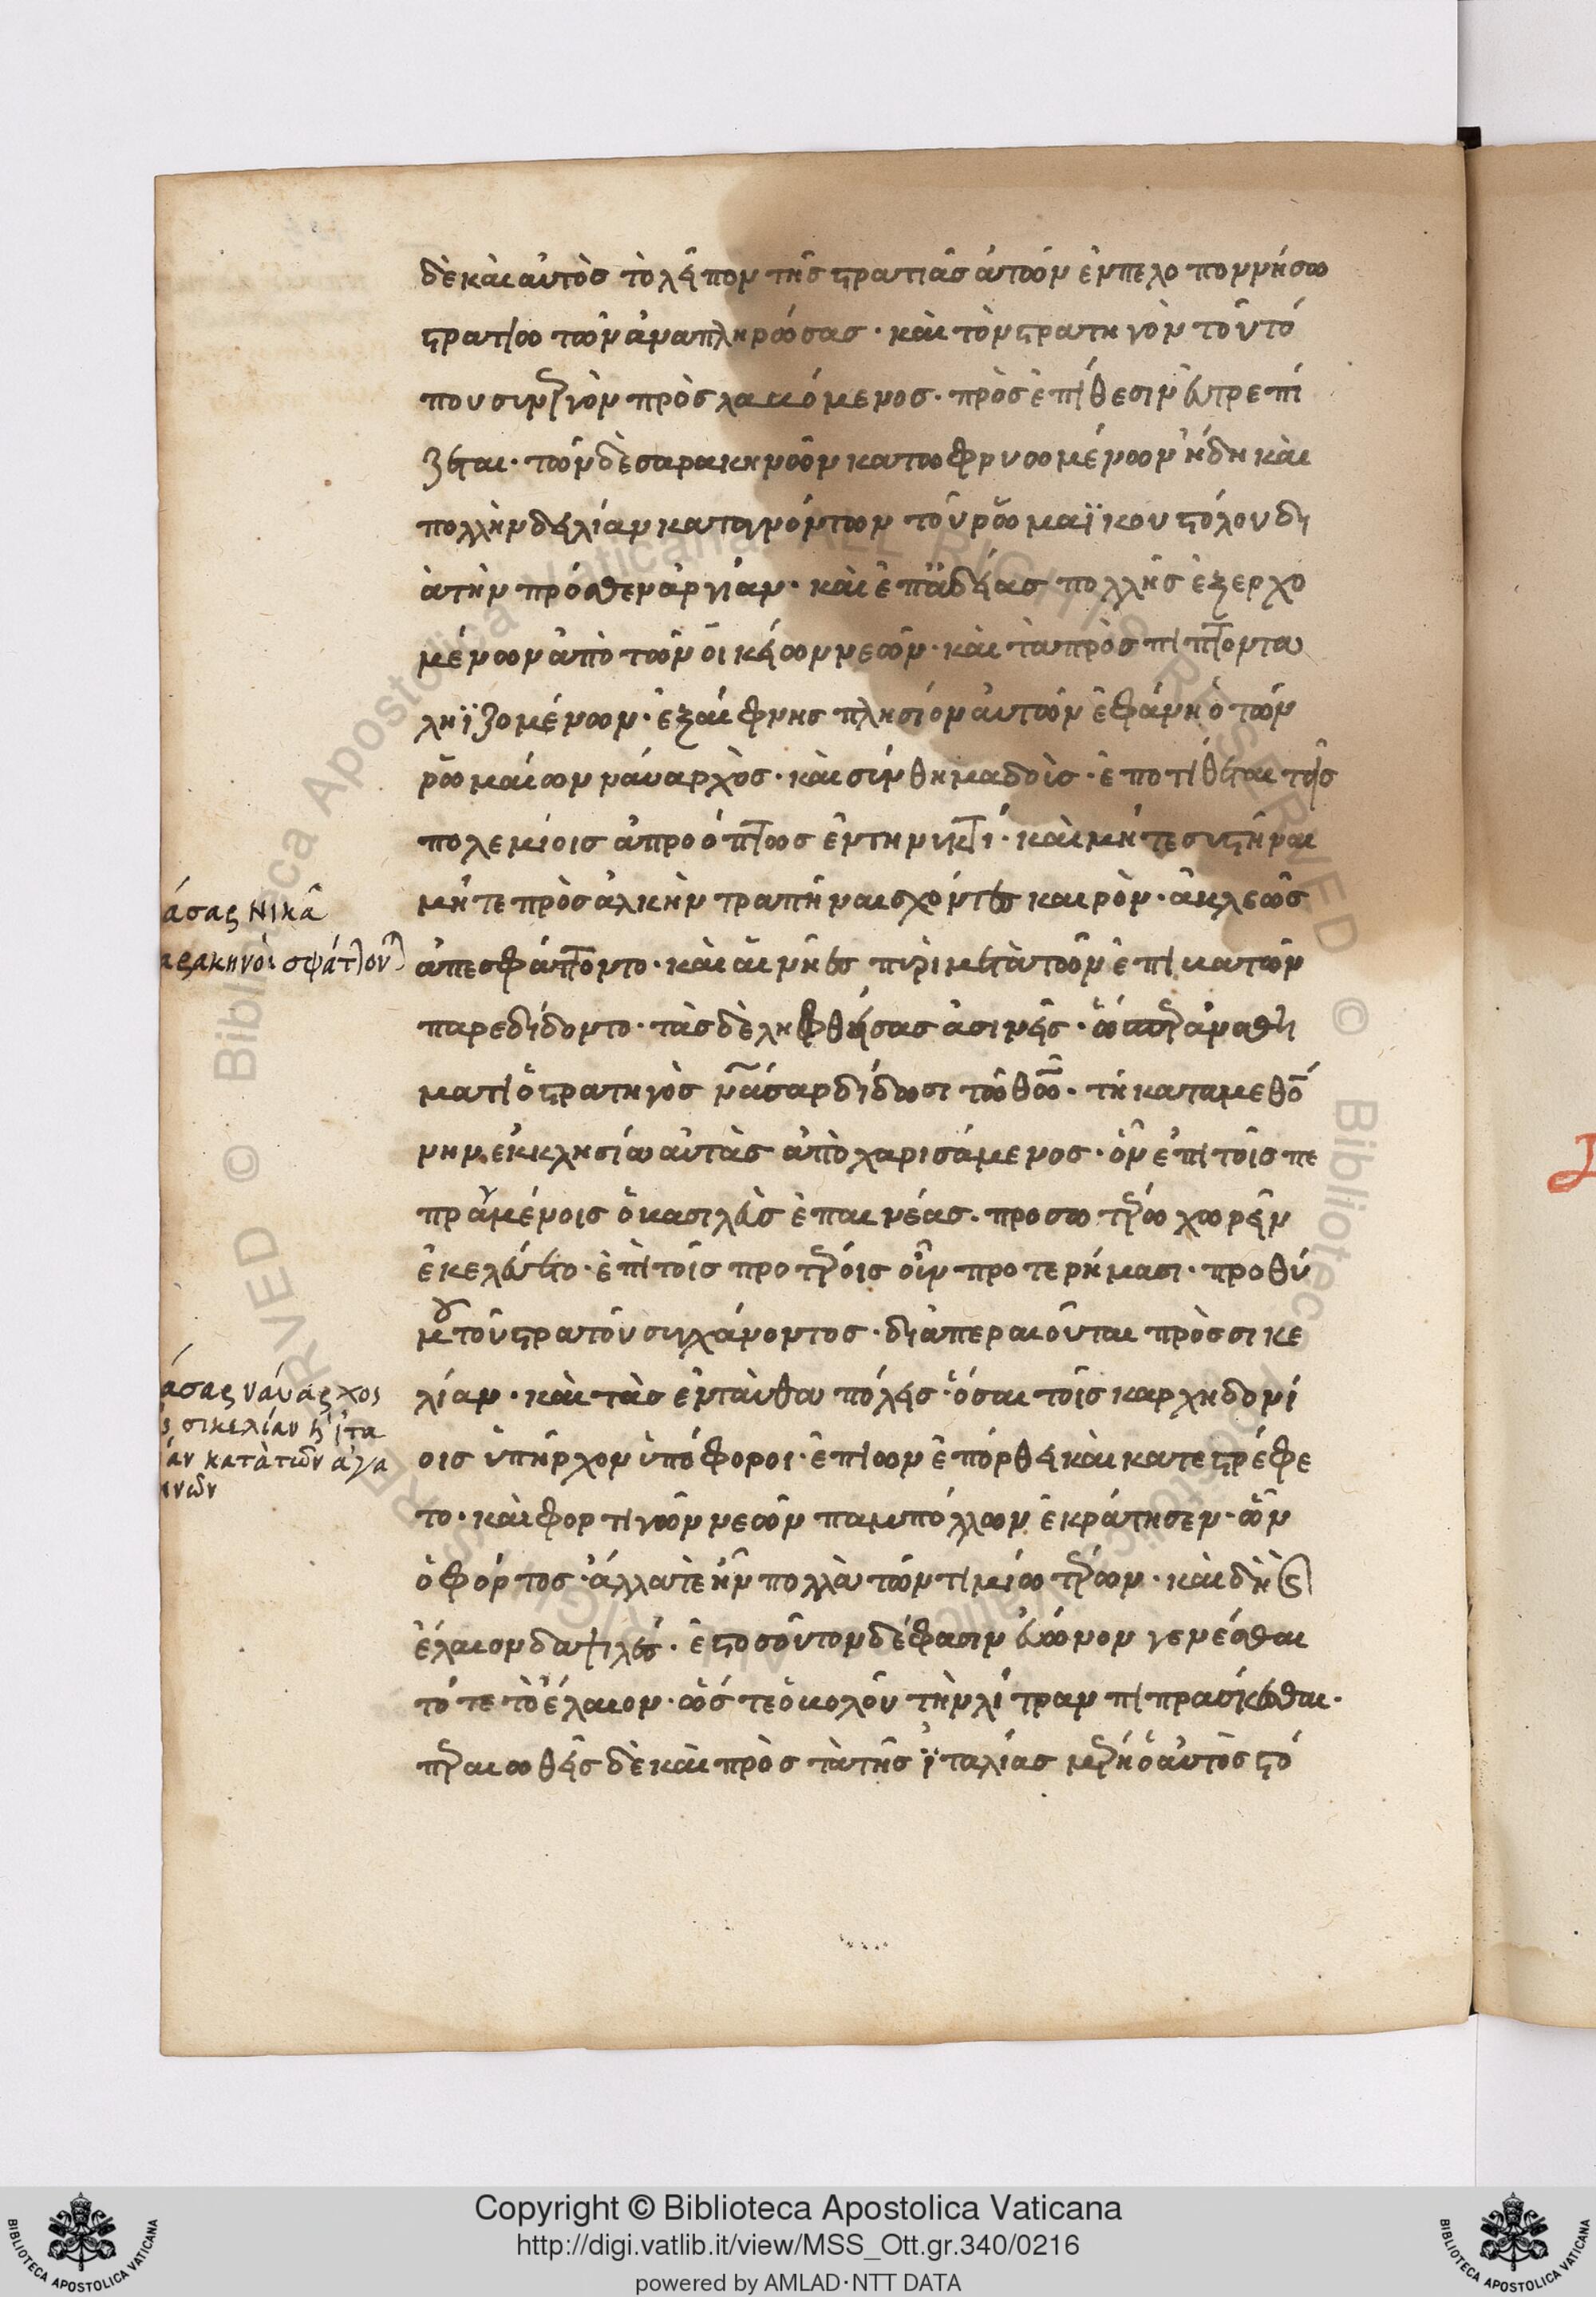 δὲ καὶ αὐτὸς τὸ λεῖπον τῆς στρατιᾶς αὐτῶν ἐν πελοποννήσω
στρατιωτῶν ἀναπληρώσας · καὶ τὸν στρατηγὸν τοῦ τό
που συνεργὸν προσλαβόμενος · πρὸς ἐπίθεσιν εὐτρεπί
ζεται · τῶν δὲ σαρακηνῶν κατωφρυωμένων ἤδη καὶ
πολλὴν δειλίαν καταγνόντων τοῦ ῥωμαϊκοῦ στόλου δι
ὰ τὴν πρόσθεν ἀργίαν · καὶ ἐπ' ἀδείας πολλῆς ἐξερχο
μένων ἀπὸ τῶν οἰκείων νεῶν · καὶ τὰ προσπίπτοντα
ληϊζομένων · ἐξαίφνης πλησίον αὐτῶν ἐφάνη ὁ τῶν
ῥωμαίων ναύαρχος · καὶ σύνθημα δοὺς · ἐποτίθεται τοῖς
πολεμίοις ἀπροόπτως ἐν τῆ νυκτί · καὶ μήτε συστῆναι
μήτε πρὸς ἀλκὴν τραπῆναι σχόντες καιρὸν · ἀκλεῶς
ἀπεσφάττοντο · καὶ αἱ νῆες πυρὶ μετὰ τῶν ἐπιβατῶν
παρεδίδοντο · τὰς δὲ ληφθείσας ἀσινεῖς · ὥσπερ ἀναθή
ματι ὁ στρατηγὸς νάσαρ δίδωσι τῶ θεῶ · τῆ κατα μεθώ
νην ἐκκλησία αὐτὰς ἀποχαρισάμενος · ὃν ἐπὶ τοῖς πε
πραγμένοις ὁ βασιλεὺς ἐπαινέσας · προσωτέρω χωρεῖν
ἐκελεύετο · ἐπὶ τοῖς προτέροις οὖν προτερήμασι · προθύ
μου τοῦ στρατοῦ τυγχάνοντος · διαπεραιοῦται πρὸς σικε
λίαν · καὶ τὰς ἐνταῦθα πόλεις · ὅσαι τοῖς καρχηδονί
οις ὑπῆρχον ὑπόφοροι · ἐπιὼν ἐπόρθει καὶ κατεστρέφε
το · καὶ φορτηγῶν νεῶν παμπόλλων ἐκράτησεν · ὧν
ὁ φόρτος · ἄλλα τε ἦν πολλὰ τῶν τιμιωτέρων · καὶ δὴ καὶ
ἔλαιον δαψιλές · ἐς τοσοῦτον δέ φασιν εὔωνον γενέσθαι
τότε τὸ ἔλαιον · ὥστε ὀβολοῦ τὴν λίτραν πιπράσκεσθαι ·
περαιωθεὶς δὲ καὶ πρὸς τὰ τῆς ἰταλίας μέρη ὁ αὐτὸς στό
άσαρ νικᾶ
αρακηνοὶ σφάττον
άσαρ ναύαρχος
σικελίαν καὶ ἰτα
άν κατὰ τῶν ἀγα
ηνῶν
Copyright © Biblioteca Apostolica Vaticana
http://digi.vatlib.it/view/MSS_Ott.gr.340/0216
powered by AMLAD·NTT DATA